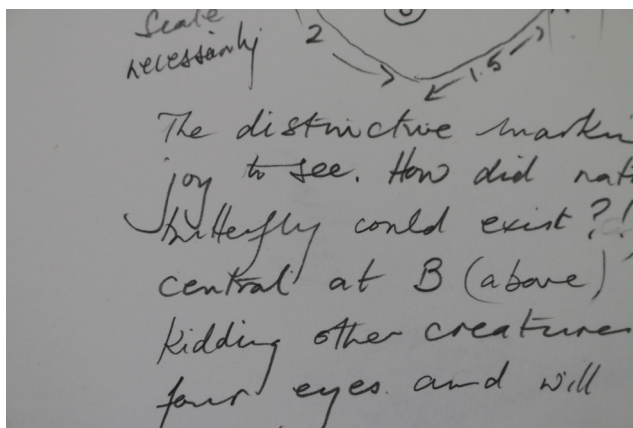 Scale
necessarily
2
1.5
The distinctive markin
joy to see. How did nat
butterfly could exist?!
central at B (above)
kidding other creatures
four eyes and will